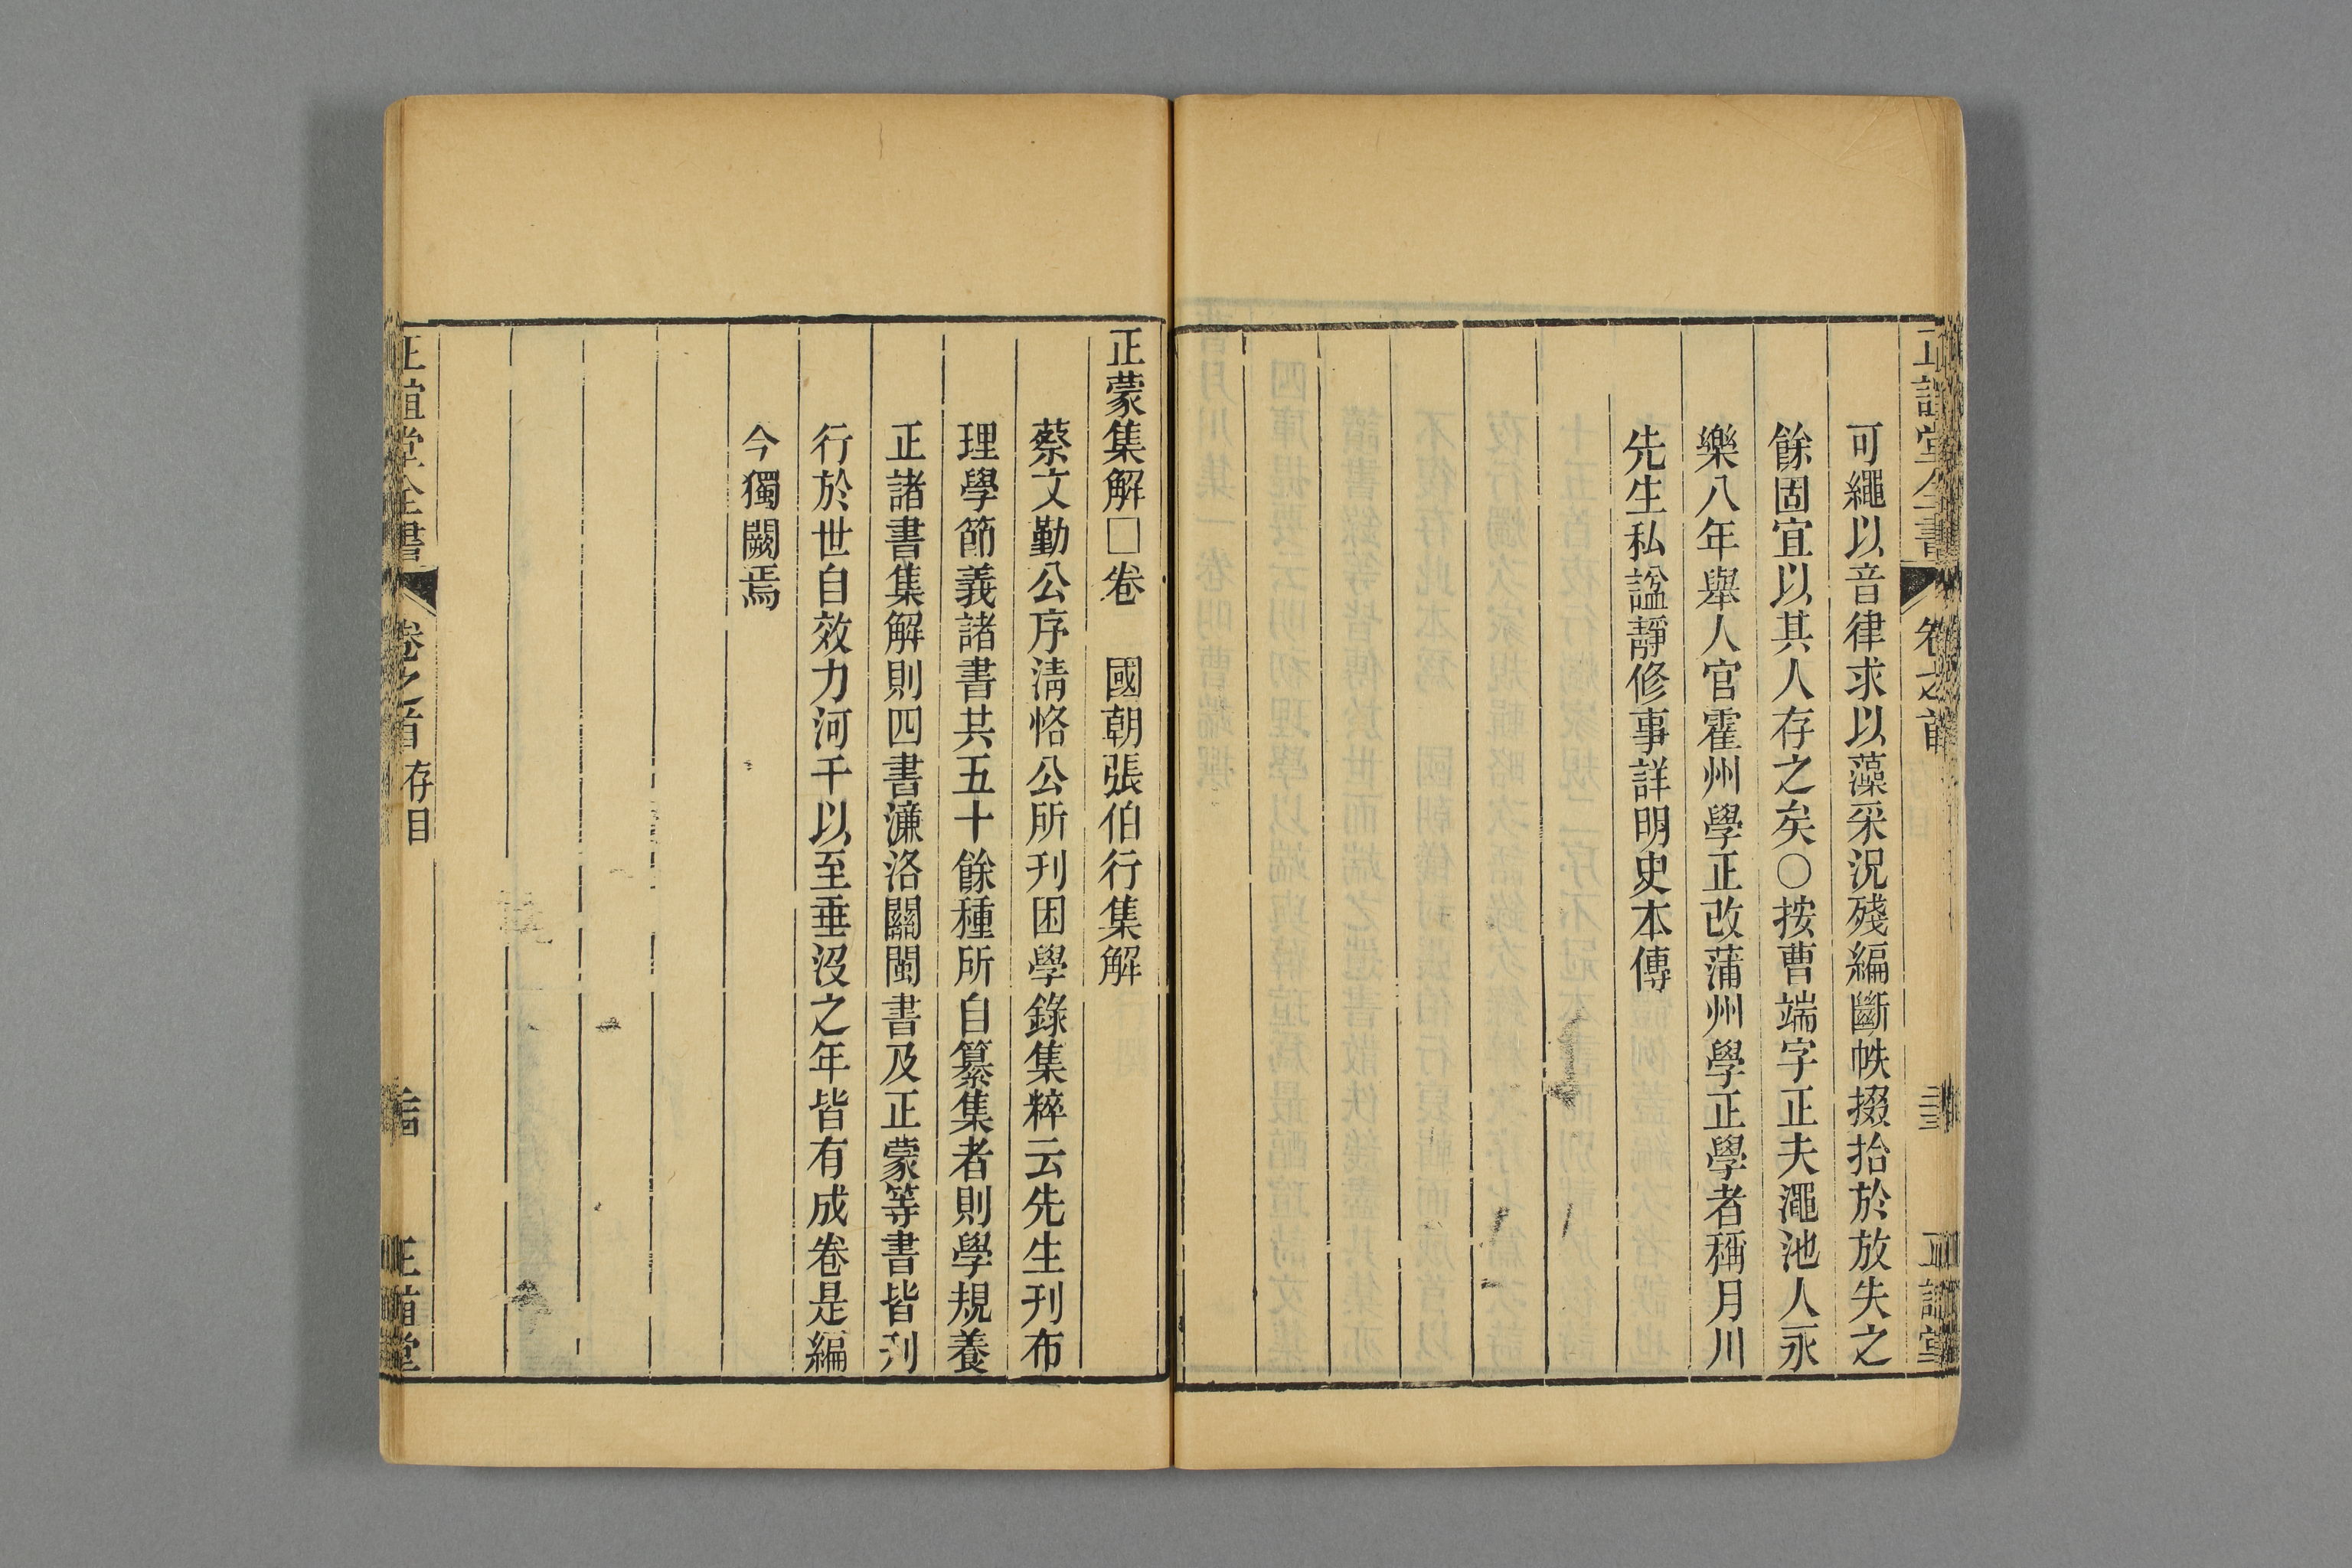 可繩以音律求以藻采況殘編斷帙掇拾於放失之
餘固宜以其人存之矣〇按曹端字正夫澠池人永
樂八年舉人官霍州學正改蒲州學正學者稱月川
先生私諡靜修事詳明史本傳
正蒙集解□卷　國朝張伯行集解
蔡文勤公序清恪公所刊困學錄集粹云先生刊布
理學節義諸書共五十餘種所自纂集者則學規養
正諸書集解則四書濂洛關閩書及正蒙等書皆刊
行於世自效力河干以至垂沒之年皆有成卷是編
今獨闕焉
正誼堂全書
卷之首
存目
正誼堂